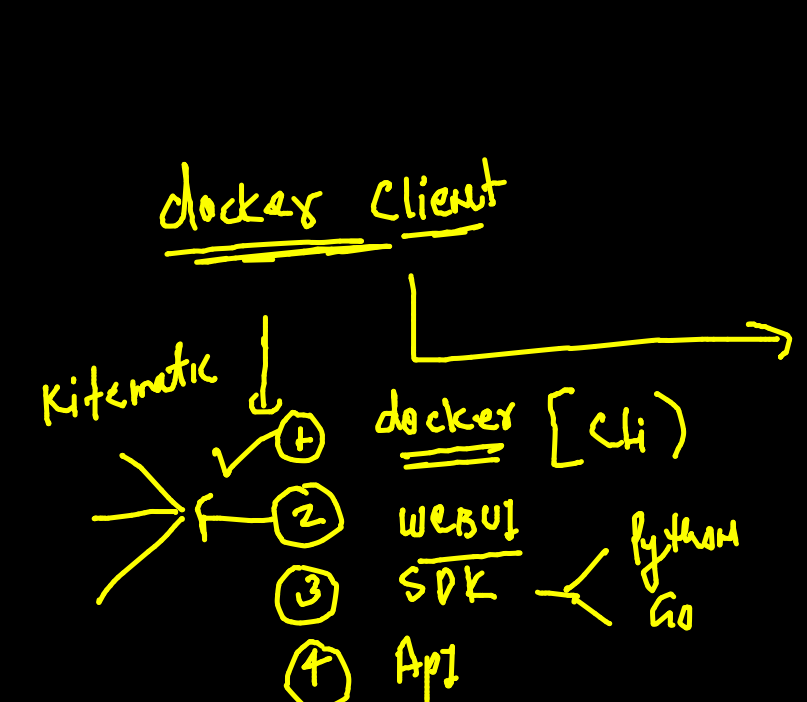 docker client
Kitematic
1 docker [cli)
2 WEBUI
3 SDK Python
Go
4 ApI